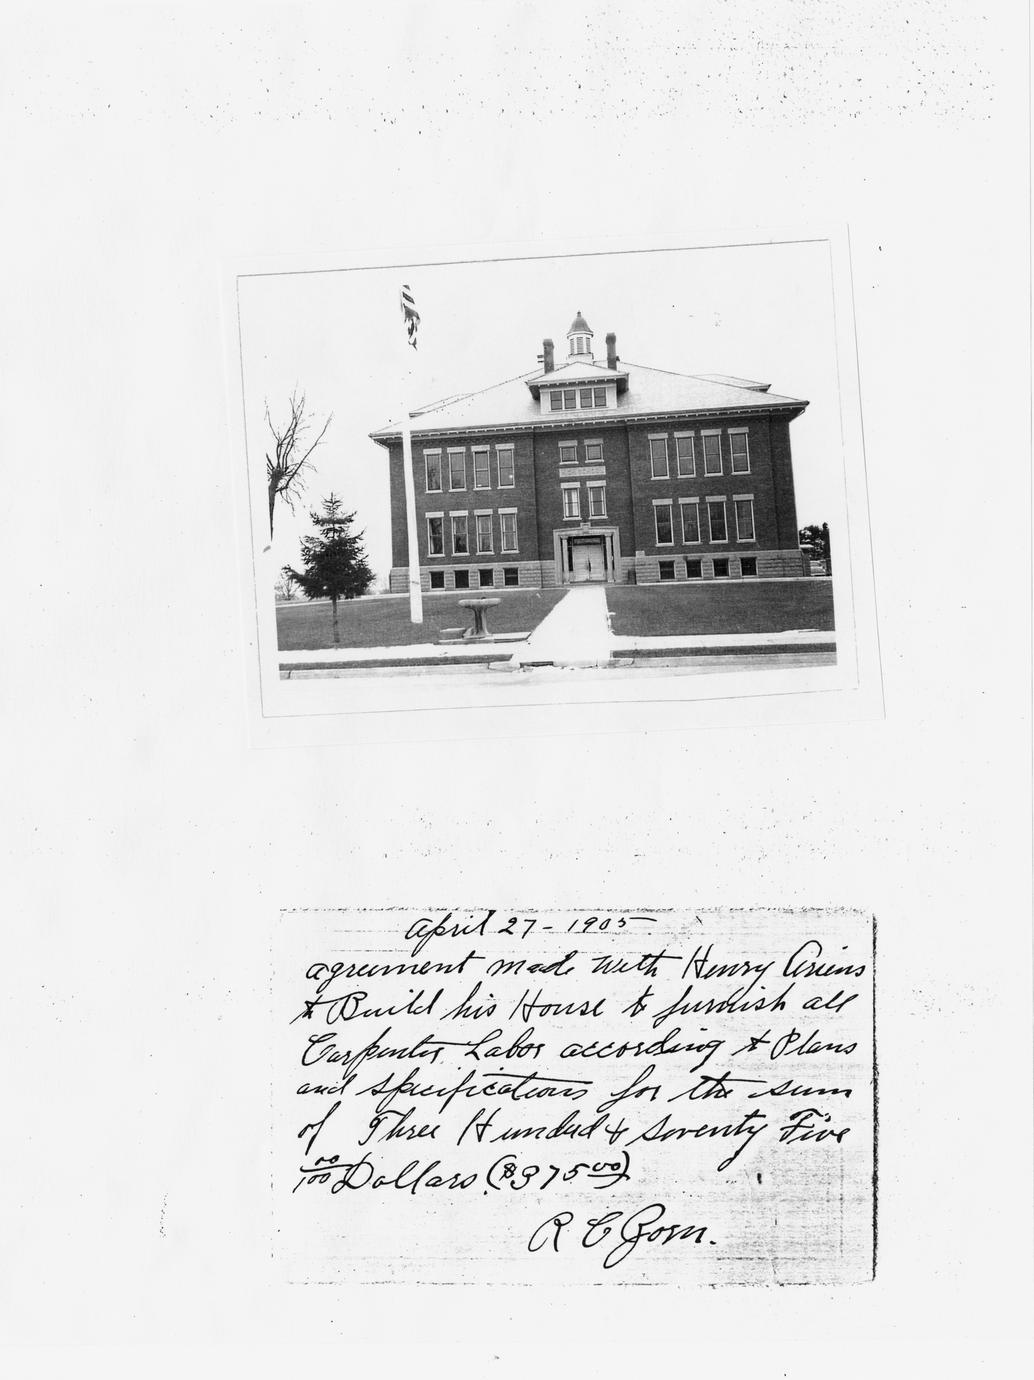 April 27 - 1905
agreement made with Henry Ariens
to Build his House to furnish all
Carpenter Labor according to Plans
and specifications for the sum
of Three Hundred & Seventy Five
00/100 Dollars ($375.00)
R C Zorn.